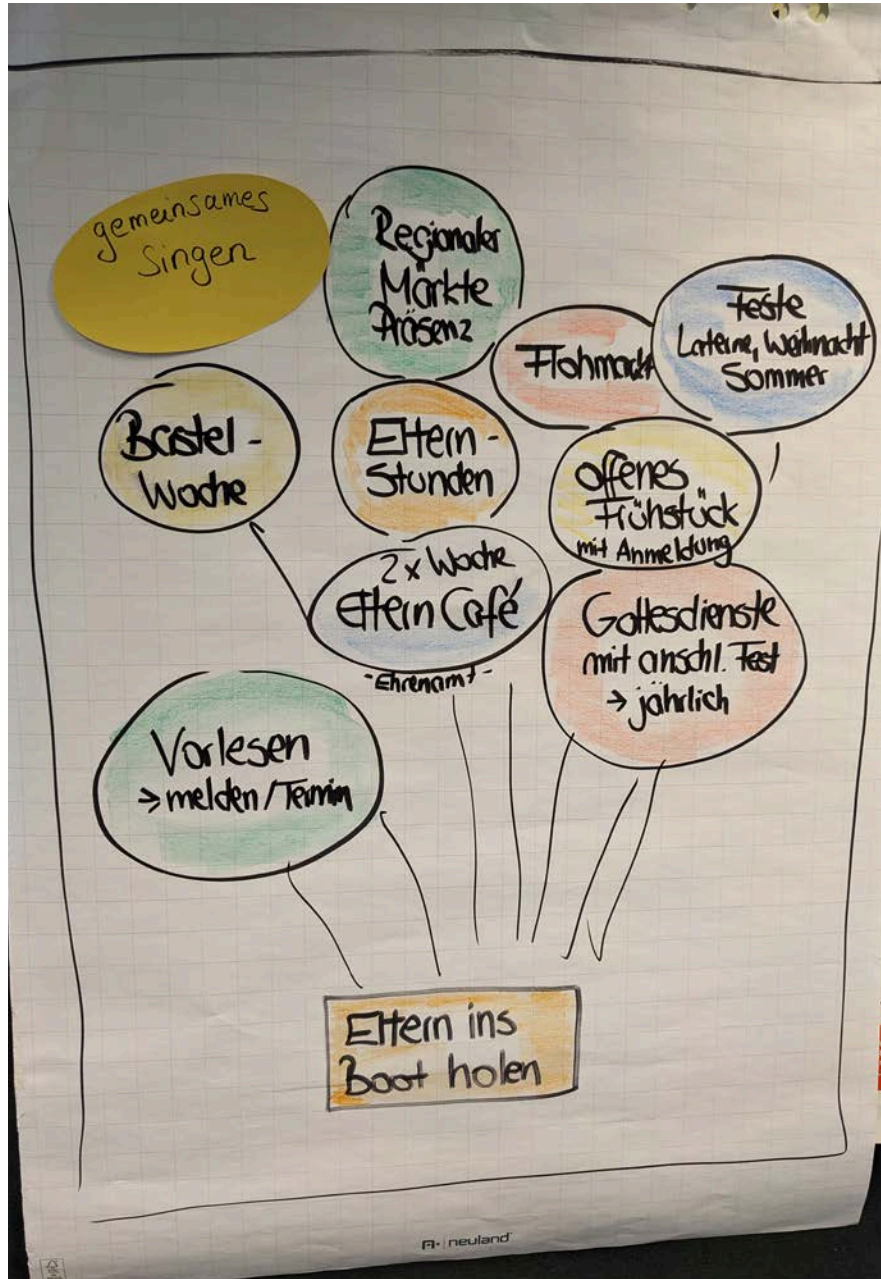 gemeinsames
Singen
Regionaler
Märkte
Präsenz
Flohmarkt
Feste
Laterne, Weihnacht
Sommer
Bastel-
Woche
Eltern-
Stunden
offenes
Frühstück
mit Anmeldung
2x Woche
Eltern Café
-Ehrenamt-
Gottesdienste
mit anschl. Fest
→ jährlich
Vorlesen
→ melden/Termin
Eltern ins
Boot holen
neuland